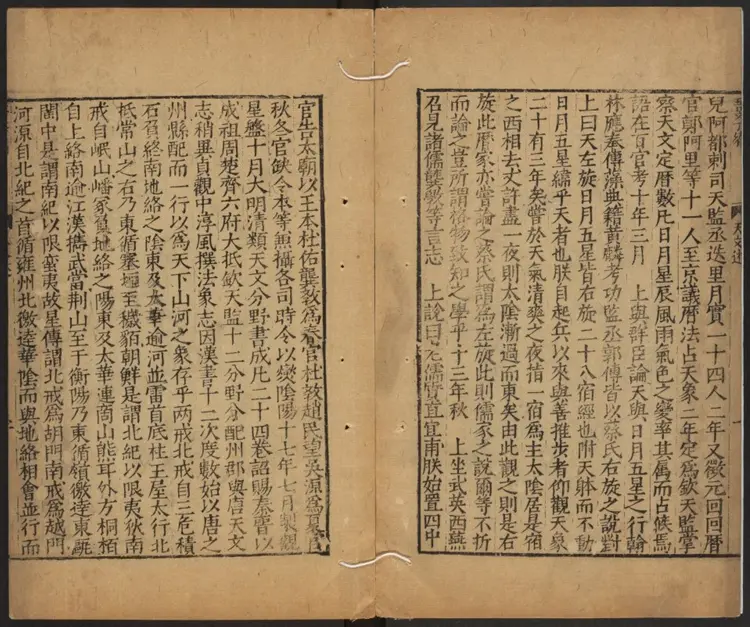 兒阿都剌司天監丞迭里月實一十四人二年又徵元回回曆
官鄭阿里等十一人至京議曆法占天象二年定為欽天監掌
察天文定曆數凡日月星辰風雨氣色之變率其屬而占候焉
語在百官考十年三月 上與群臣論天與日月五星之行翰
林應奉傅藻典籍黃麟考功監丞郭傳皆以蔡氏右旋之說對
上曰天左旋日月五星皆右旋二十八宿經也附天躰而不動
日月五星緯乎天者也朕自起兵以來與善推步者仰觀天象
二十有三年矣嘗於天氣清爽之夜指一宿為主太陰居是宿
之西相去丈許盡一夜則太陰漸過而東矣由此觀之則是右
旋此曆家亦嘗論之蔡氏謂為左旋此則儒家之說爾等不折
而論之豈所謂格物致知之學乎十三年秋 上坐武英西廡
召見諸儒龔斆等言志 上說曰 儒皆直宜甫朕始置四中
官告太廟以王本杜佑龔斆為春官杜斆趙民望吳源為夏官
秋冬官缺令本等兼攝各司時令以燮陰陽十七年七月製觀
星盤十月大明清類天文分野書成凡二十四卷詔賜秦晉以
成祖周楚齊六府大抵欽天監十二分野分配州郡與唐天文
志稍異貞觀中淳風撰法象志因漢書十二次度數始以唐之
州縣配而一行以為天下山河之象存乎兩戒北戒自三危積
石負終南地絡之陰東及太華逾河並雷首底柱王屋太行北
抵常山之右乃東循塞垣至穢貊朝鮮是謂北紀以限夷狄南
戒自岷山嶓冢負地絡之陽東及太華連商山熊耳外方桐栢
自上絡南逾江漢攜武當荆山至于衡陽乃東循嶺徼達東甌
閩中是謂南紀以限蠻夷故星傳謂北戒為胡門南戒為越門
河源自北紀之首循雍州北徼達華陰而與地絡相會並行而